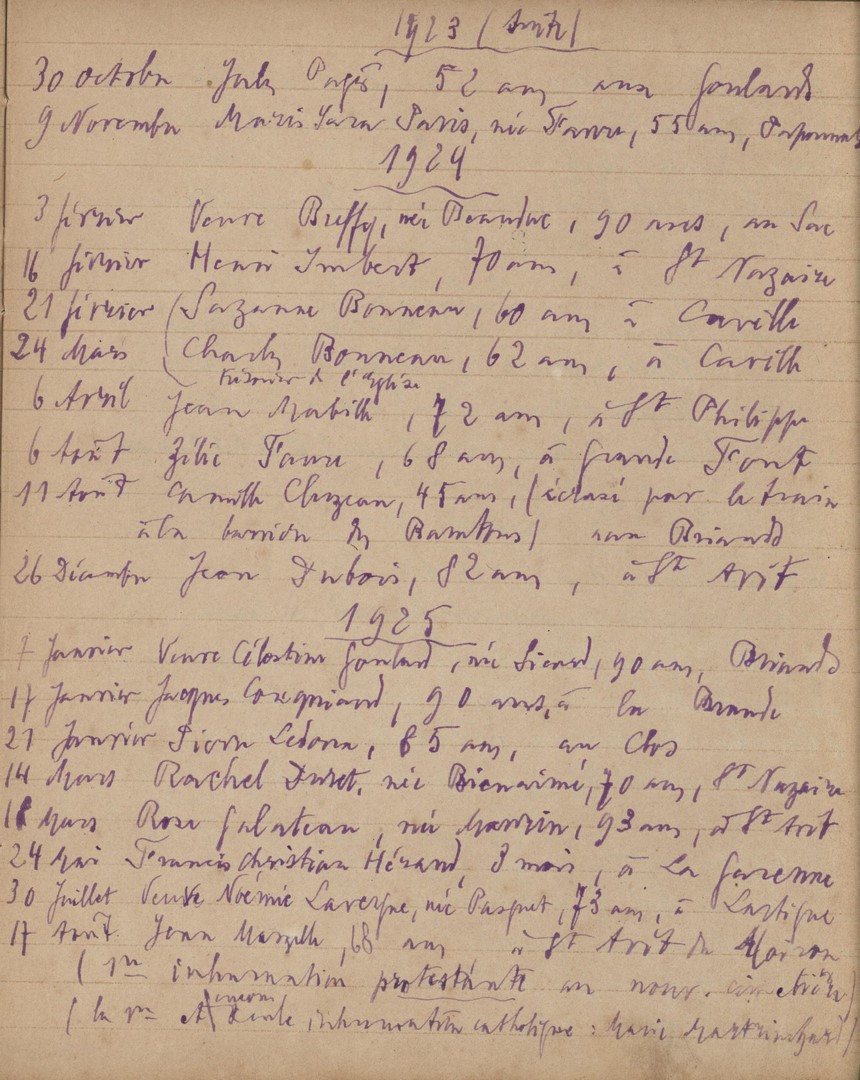 1923 (suite)
30 octobre Pagès, 52 ans aux Goulards
9 Novembre Marie Paris, née Favre, 55 ans,
1924
3 février Veuve Buffy, née 90 ans, au Sac
16 février Henri Imbert, 70 ans, à St Nazaire
21 février (Suzanne Bonneau, 60 ans à Caville
24 Mars (Charles Bonneau, 62 ans, à Caville
Trésorier de l'Eglise
6 Avril Jean Mabille, 72 ans, à St Philippe
6 Août Zélie Faure, 68 ans, à Grande Font
11 Août Camille Cluzeau, 45 ans, (écrasé par le train
à la barrière des) aux Briands
26 Décembre Jean Dubois, 82 ans, à St Avit
1925
7 Janvier Veuve Célestine Goulard, née Sicard, 90 ans, Briands
17 Janvier Jacques 90 ans, à la Brande
21 Janvier Pierre 85 ans, au Clos
14 Mars Rachel Duret, née Bienaimé, 70 ans, St Nazaire
18 Mars Rose Galateau, née 93 ans, à St Avit
24 Mai Francis Christian Héraud, 8 mois, à La Garenne
30 Juillet Veuve Noémie Lavergne, née Pasquet, 73 ans, à Lartigue
17 Août Jean 68 ans à St Avit du Moiron
(1re inhumation protestante au nouv. cimetière)
(la 1re inhumation catholique : Marie